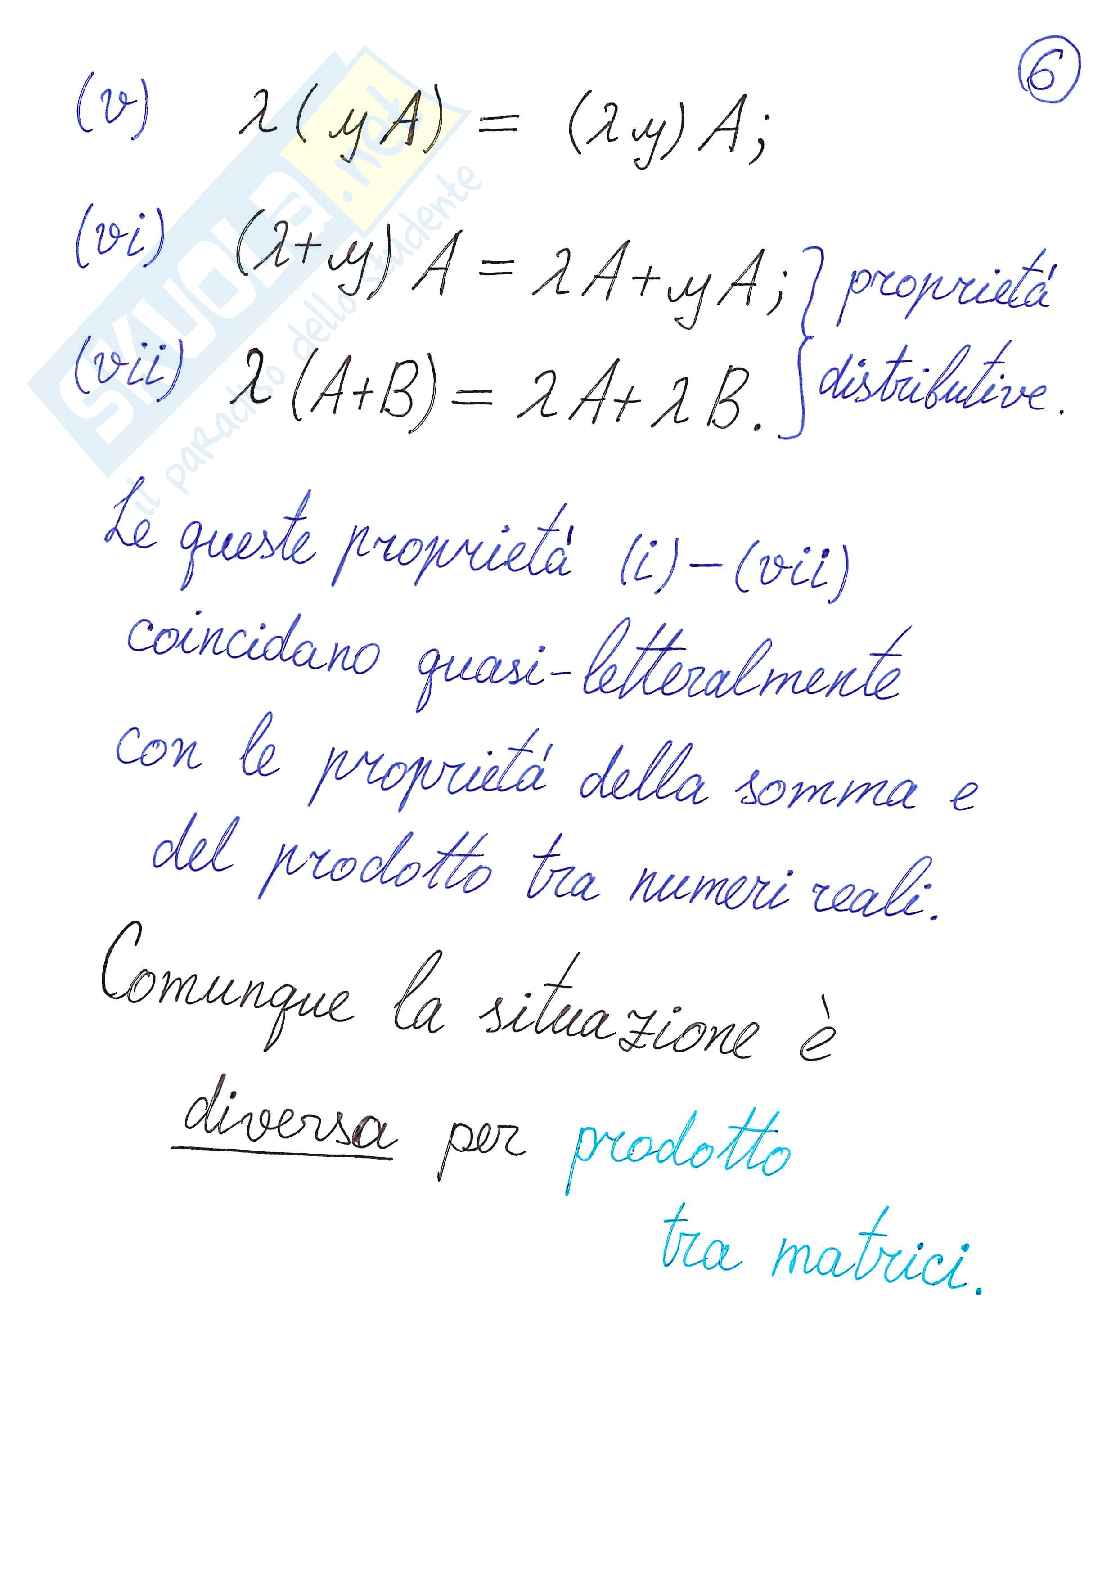 6
(v) λ(μA) = (λμ)A;
(vi) (λ+μ)A = λA+μA; } proprietá
(vii) λ(A+B) = λA+λB. } distributive.
Le queste proprietá (i)-(vii)
coincidano quasi-letteralmente
con le proprietá della somma e
del prodotto tra numeri reali.
Comunque la situazione è
diversa per prodotto
tra matrici.
SKUOLA.net
il paradiso dello studente